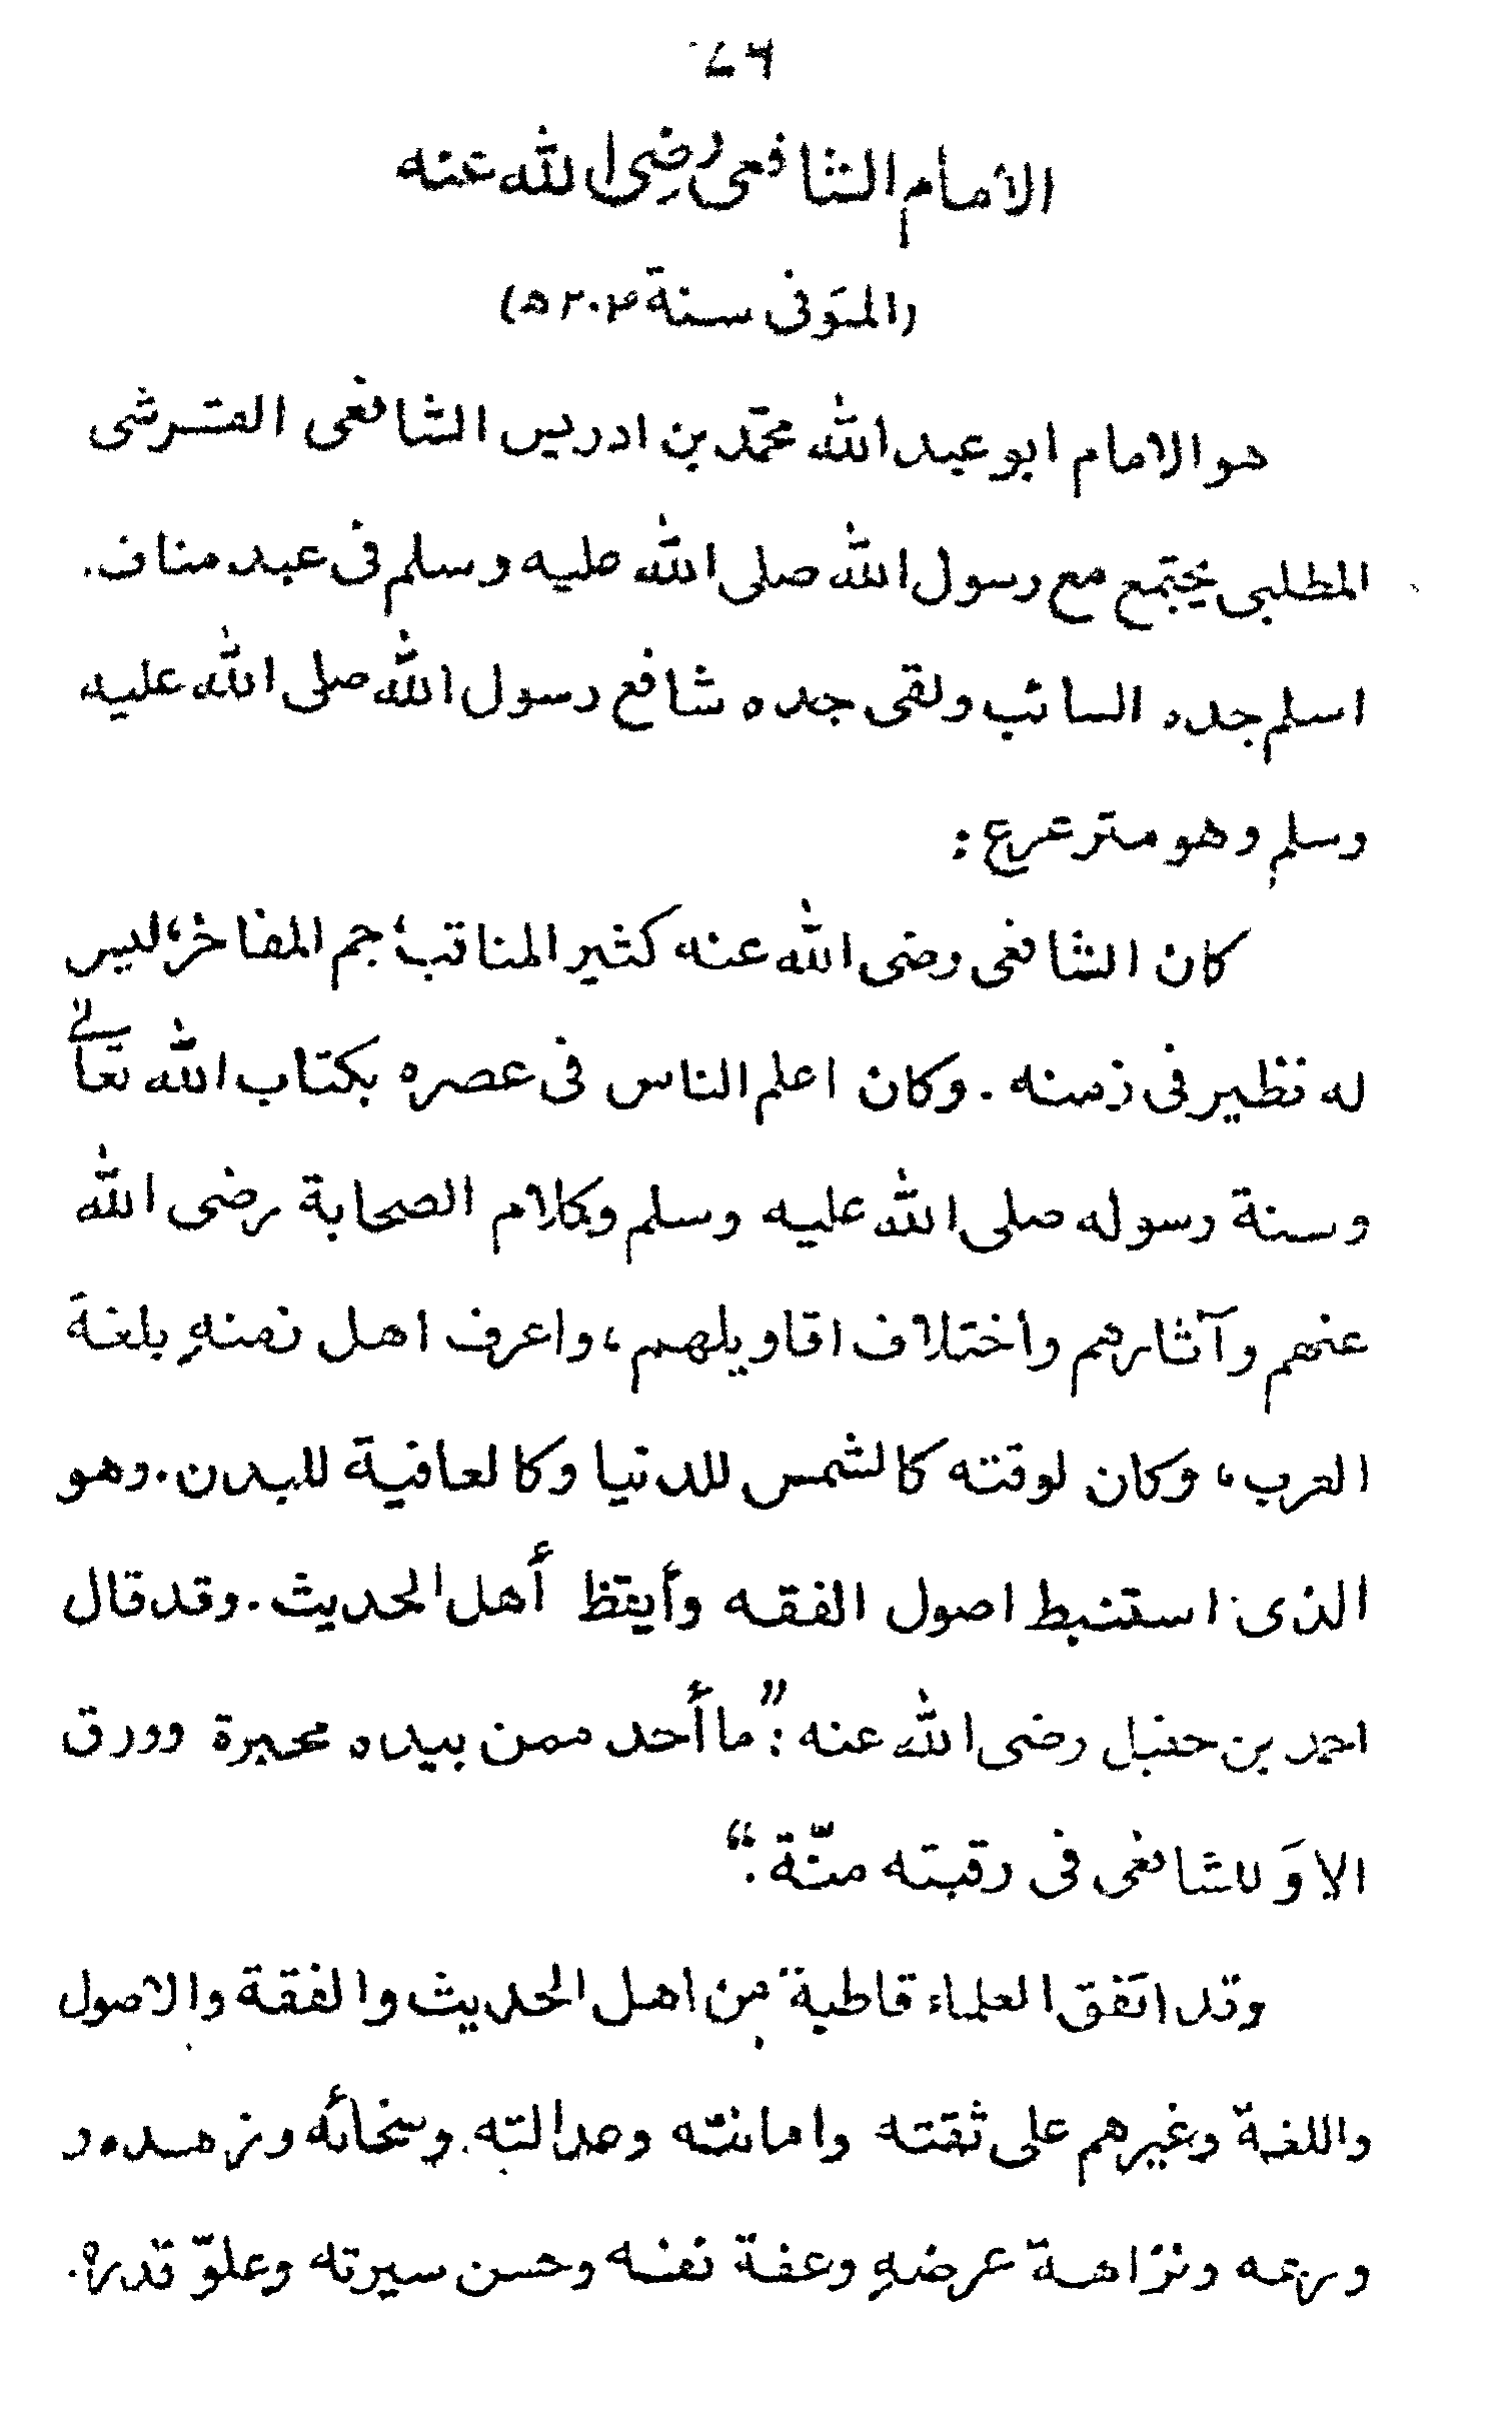 الامام الشافعى رضى الله عنه
(المتوفى سنة ٢٠٤ه)
هو الامام ابو عبد الله محمّد بن ادريس الشافعى القرشى
المطلبى يجتمع مع رسول الله صلى الله عليه وسلم فى عبد مناف.
اسلم جده السائب ولقى جده شافع رسول الله صلى الله عليه
وسلم وهو مترعرع :
كان الشافعى رضى الله عنه كثير المناقب، جم المفاخر، ليس
له نظير فى زمنه . وكان اعلم الناس فى عصره بكتاب الله تعالى
وسنة رسوله صلى الله عليه وسلم وكلام الصحابة رضى الله
عنهم وآثارهم واختلاف اقاويلهم، واعرف اهل زمنهِ بلغة
العرب، وكان لوقته كالشمس للدنيا وكالعافية للبدن. وهو
الذى استنبط اصول الفقه وأيقظ أهل الحديث. وقد قال
احمد بن حنبل رضى الله عنه : "ما أحد ممن بيده محبرة وورق
الا وَ للشافعى فى رقبته منّة ."
وقد اتفق العلماء قاطبة من اهل الحديث والفقة والاصول
واللغة وغيرهم على ثقته وامانته وعدالته. وسخائه وزهده و
ورعه ونزاهة عرضهِ وعفة نفسه وحسن سيرته وعلوّ قدره.